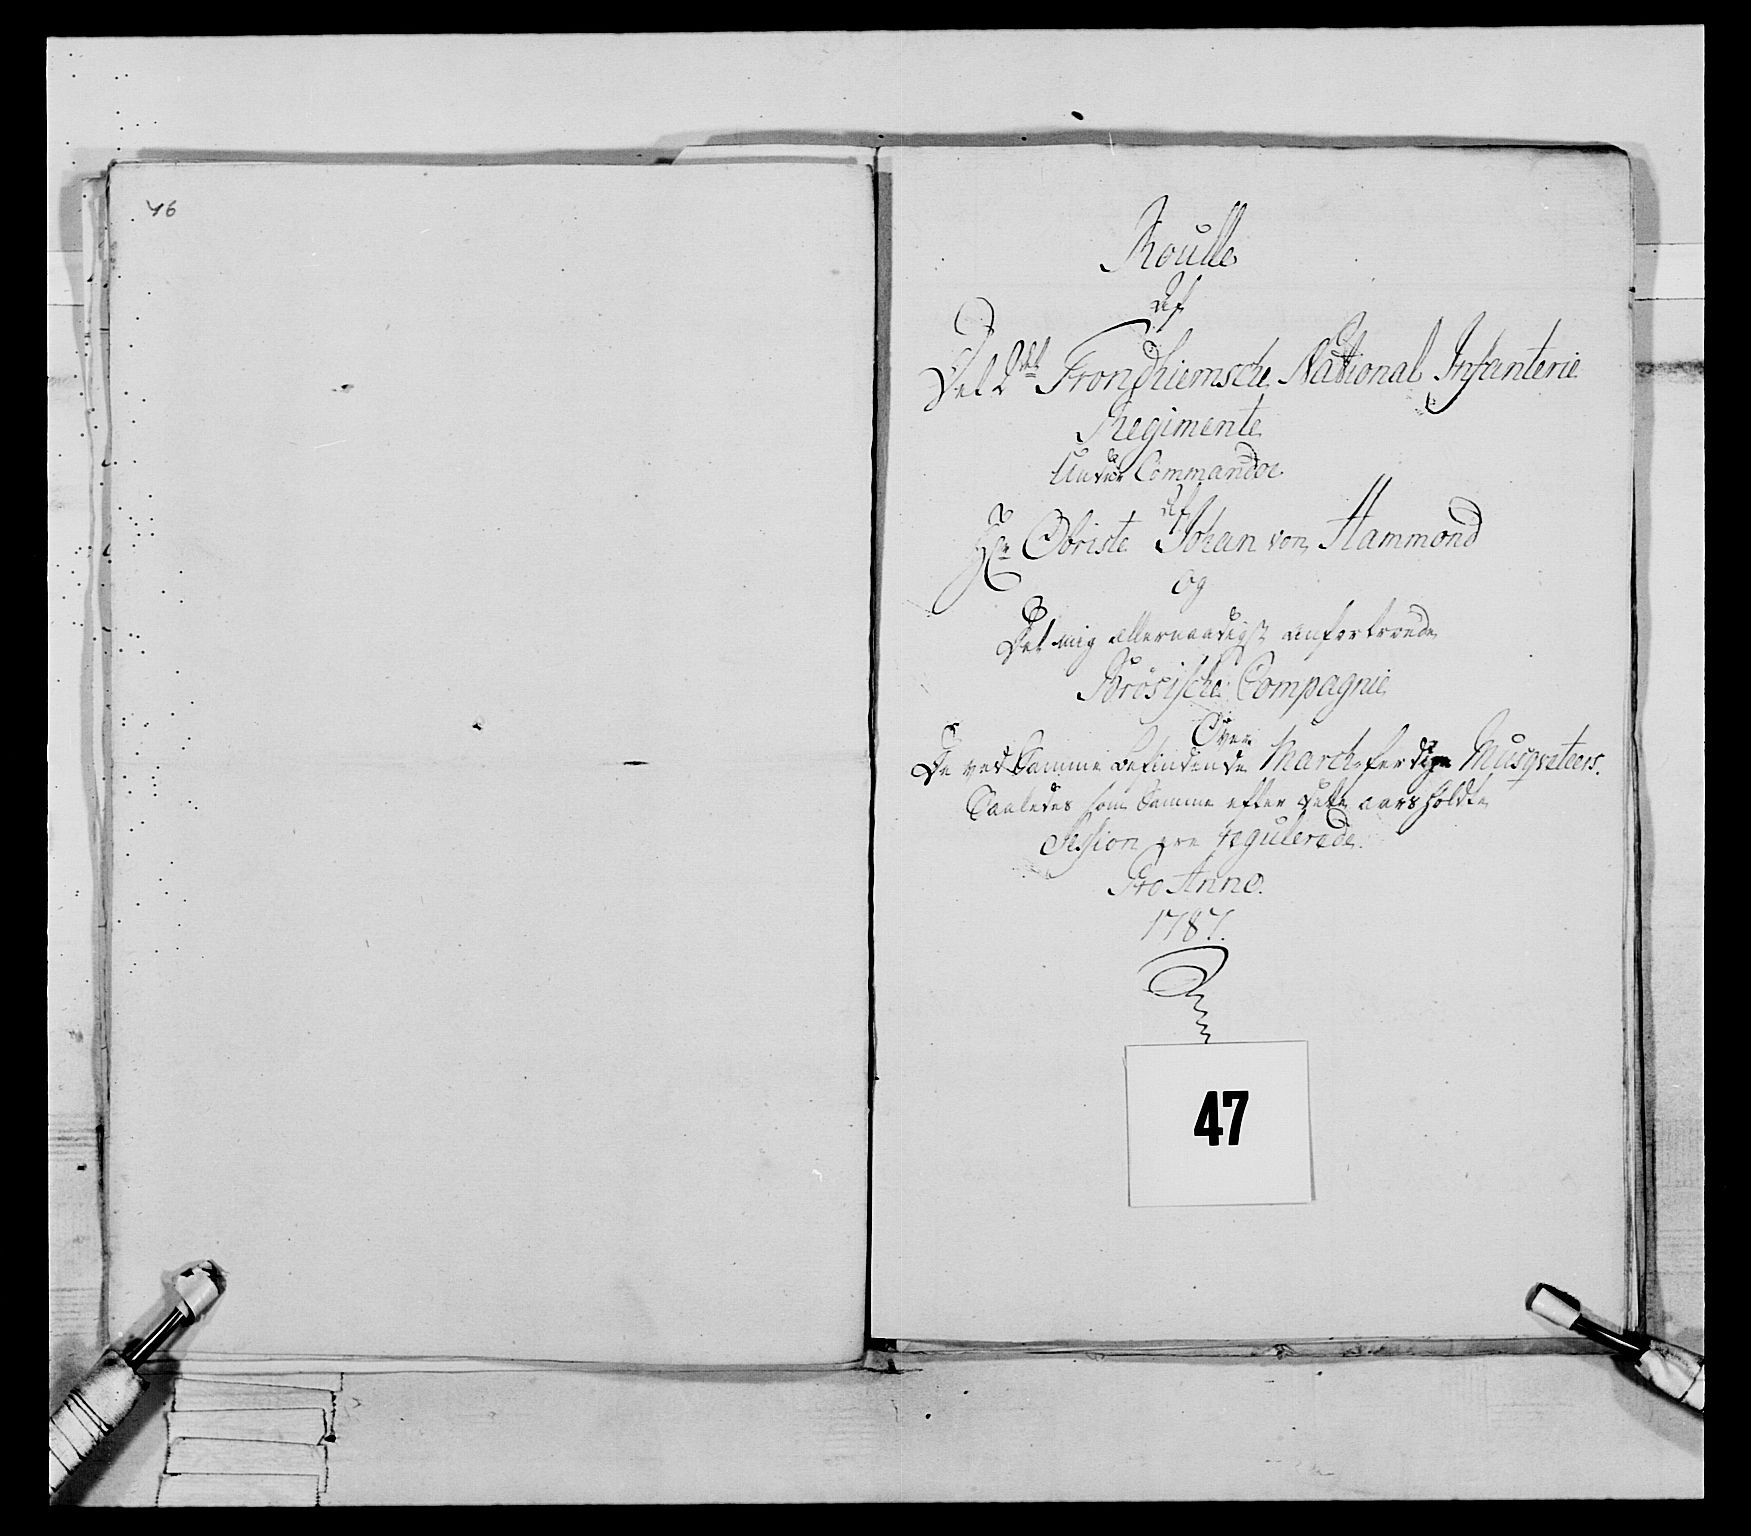 46
Roulle
Af
Det 2det Trondhiemsche National Infanterie
Regimente
Under Commandoe
af
Hr Obriste Johan von Hammond
og
Det mig allernaadigst anfortroede
Børsische Compagnie
Over
De ved Samme befindende March-ferdige Musqveteers.
Saaledes som Samme efter dette aars holdte
Session ere regulerede.
Pro Anno.
1787.
47